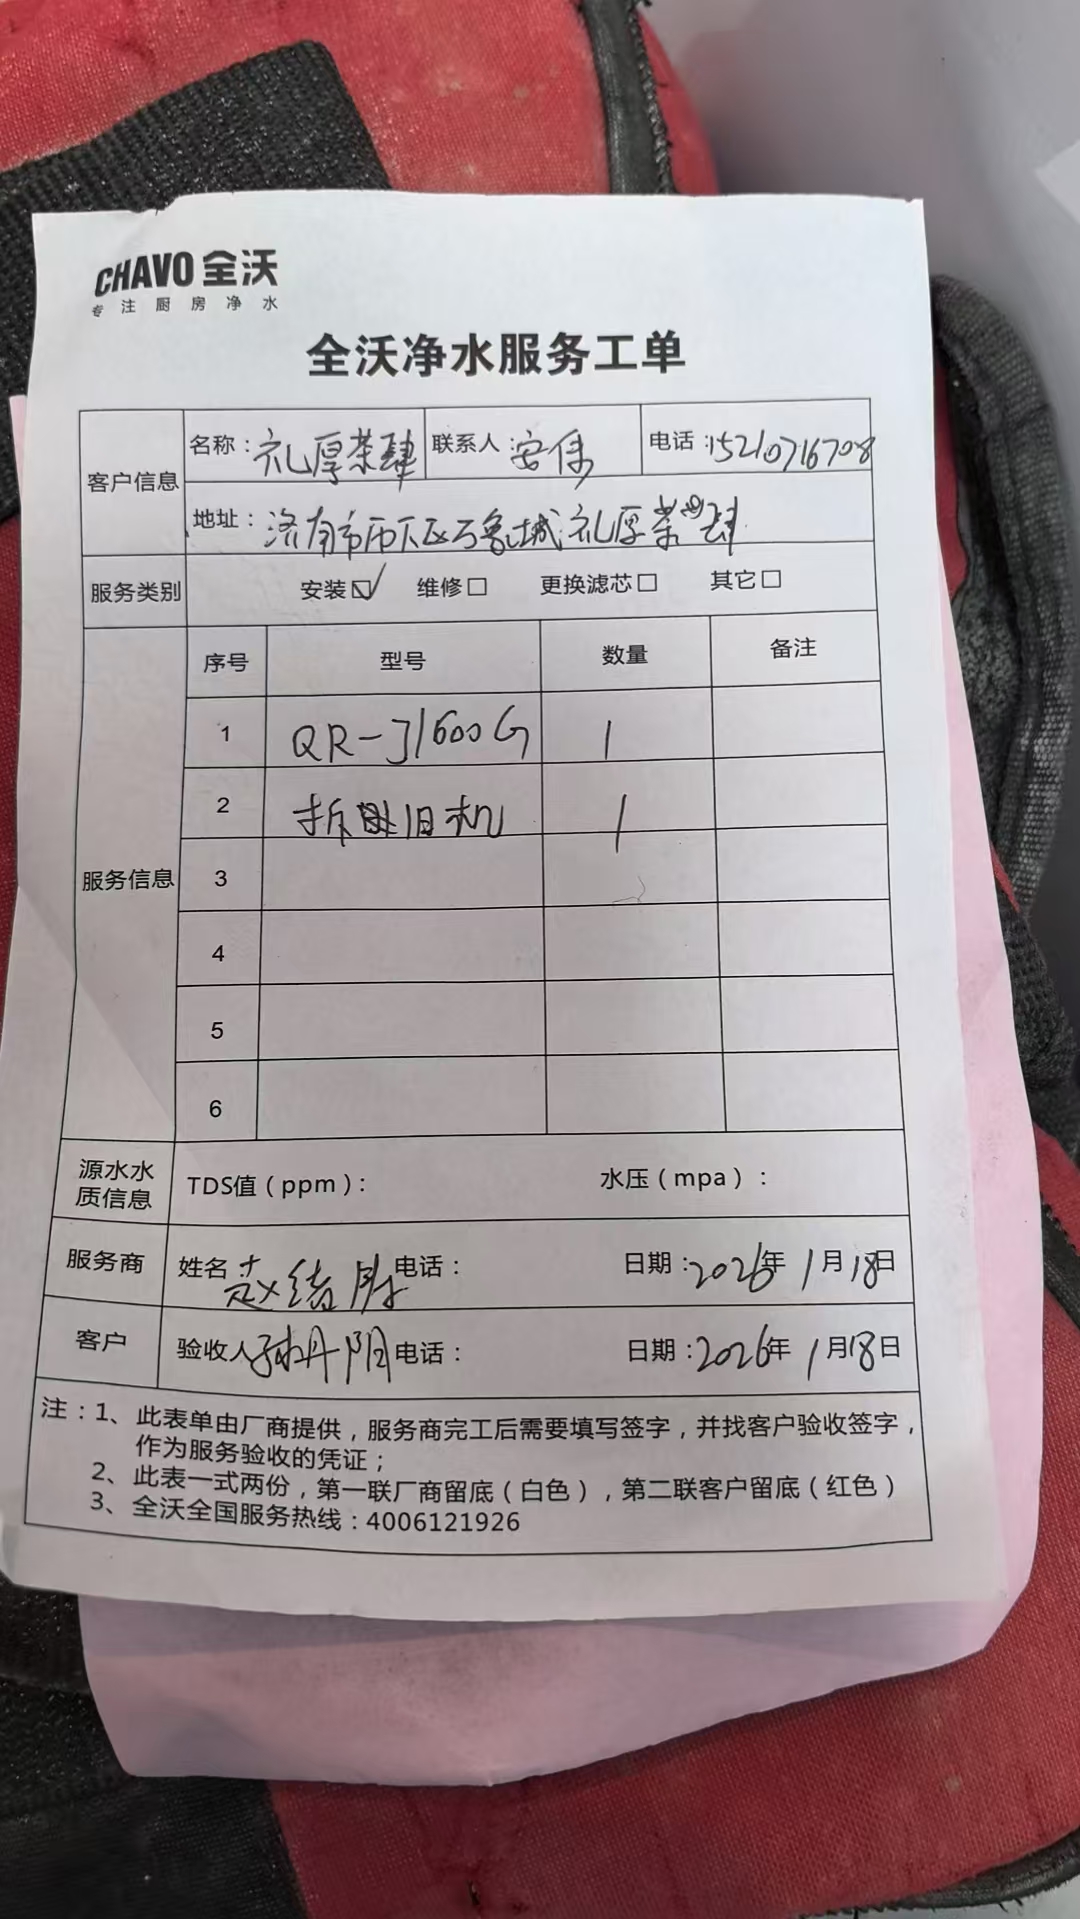 CHAVO 全沃
专注厨房净水
全沃净水服务工单
客户信息 名称：礼厚茶肆 联系人：安保 电话：15210716708
地址：济南市历下区万象城礼厚茶肆
服务类别 安装☑ 维修□ 更换滤芯□ 其它□
服务信息 序号 型号 数量 备注
1 QR-J1600G 1
2 拆旧机 1
3
4
5
6
源水水质信息 TDS值（ppm）： 水压（mpa）：
服务商 姓名 赵绪胜 电话： 日期：2026年1月18日
客户 验收人 孙丹阳 电话： 日期：2026年1月18日
注：1、此表单由厂商提供，服务商完工后需要填写签字，并找客户验收签字，
作为服务验收的凭证；
2、此表一式两份，第一联厂商留底（白色），第二联客户留底（红色）
3、全沃全国服务热线：4006121926